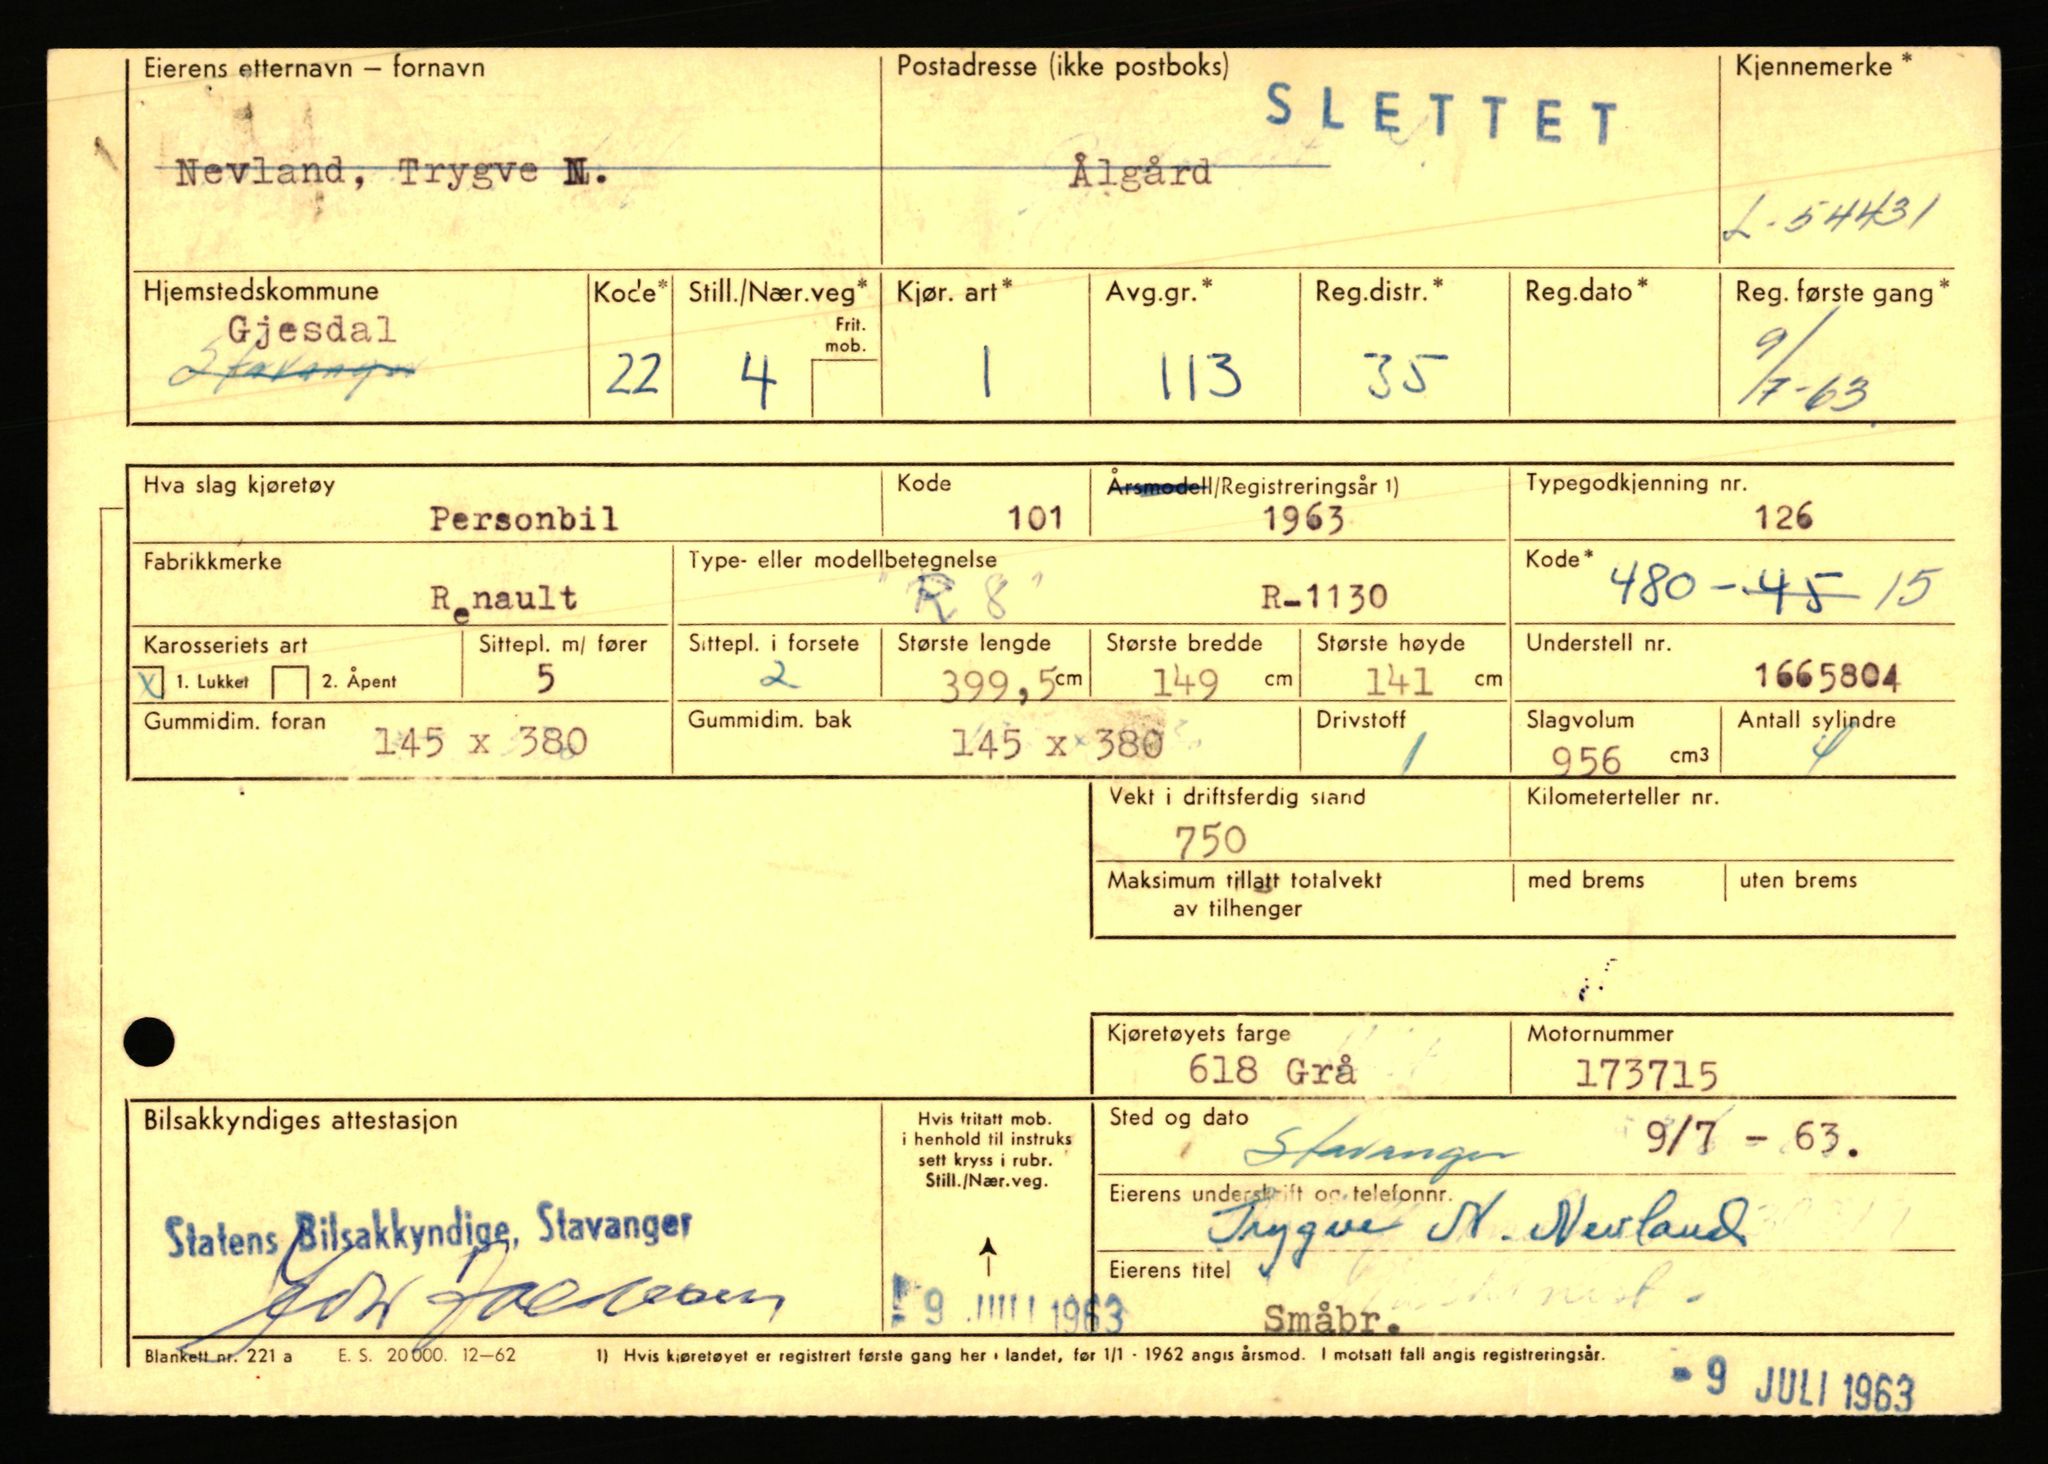 Eierens etternavn – fornavn Postadresse (ikke postboks) Kjennemerke*
SLETTET
Nevland, Trygve N. Ålgård
L-54431
Hjemstedskommune Kode* Still./Nær.veg* Kjør. art* Avg.gr.* Reg.distr.* Reg.dato* Reg. første gang*
Gjesdal Frit. mob.
Stavanger 22 4 1 113 35 9/7-63
Hva slag kjøretøy Kode Årsmodell/Registreringsår 1) Typegodkjenning nr.
Personbil 101 1963 126
Fabrikkmerke Type- eller modellbetegnelse Kode*
Renault "R 8" R-1130 480-45 15
Karosseriets art Sittepl. m/ fører Sittepl. i forsete Største lengde Største bredde Største høyde Understell nr.
x 1. Lukket 2. Åpent 5 2 399,5 cm 149 cm 141 cm 1665804
Gummidim. foran Gummidim. bak Drivstoff Slagvolum Antall sylindre
145 x 380 145 x 380 1 956 cm3 4
Vekt i driftsferdig stand Kilometerteller nr.
750
Maksimum tillatt totalvekt med brems uten brems
av tilhenger
Kjøretøyets farge Motornummer
618 Grå 173715
Bilsakkyndiges attestasjon Hvis fritatt mob. Sted og dato
i henhold til instruks
sett kryss i rubr.
Still./Nær.veg.
Stavanger 9/7 - 63.
Eierens underskrift og telefonnr.
Statens Bilsakkyndige, Stavanger Trygve N. Nevland
Eierens titel
9 1963 Småbr.
Blankett nr. 221 a E. S. 20000. 12–62 1) Hvis kjøretøyet er registrert første gang her i landet, før 1/1 - 1962 angis årsmod. I motsatt fall angis registreringsår.
- 9 JULI 1963